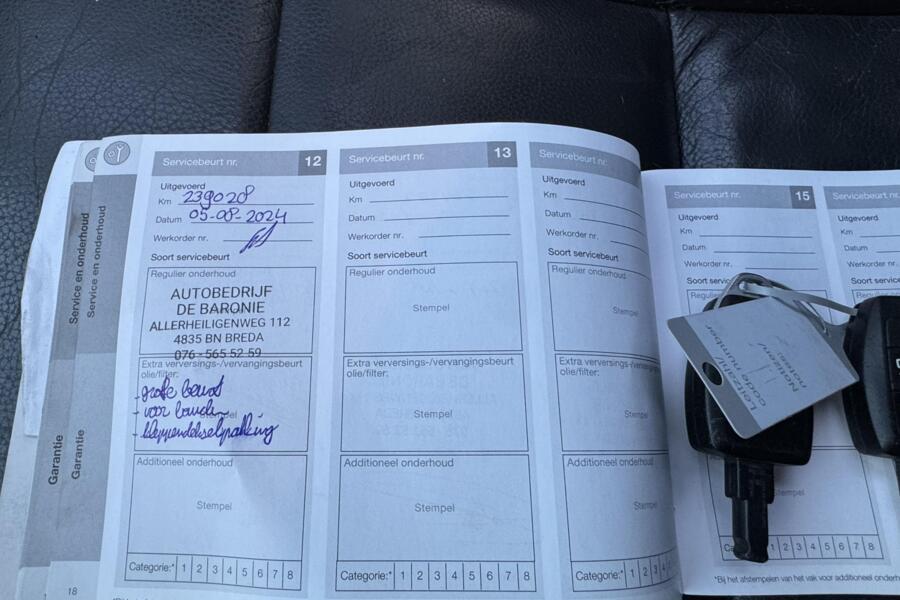 Service en onderhoud
Service en onderhoud
Garantie
Garantie
18
Servicebeurt nr. 12
Uitgevoerd
Km 239028
Datum 05-08-2024
Werkorder nr.
Soort servicebeurt
Regulier onderhoud
AUTOBEDRIJF
DE BARONIE
ALLERHEILIGENWEG 112
4835 BN BREDA
076-565 52 59
Extra verversings-/vervangingsbeurt
olie/filter:
- grote beurt
- voor banden
- kleppendekselpakking
Stempel
Additioneel onderhoud
Stempel
Categorie:* 1 2 3 4 5 6 7 8
Servicebeurt nr. 13
Uitgevoerd
Km
Datum
Werkorder nr.
Soort servicebeurt
Regulier onderhoud
Stempel
Extra verversings-/vervangingsbeurt
olie/filter:
Stempel
Additioneel onderhoud
Stempel
Categorie:* 1 2 3 4 5 6 7 8
Servicebeurt nr.
Uitgevoerd
Km
Datum
Werkorder nr.
Soort servicebeurt
Regulier onderhoud
Extra verversings-/ve
olie/filter:
Stempel
Additioneel onderhoud
Stempel
Categorie:* 1 2 3 4
Servicebeurt nr. 15
Uitgevoerd
Km
Datum
Werkorder nr.
Soort service
Stempel
1 2 3 4 5 6 7 8
*Bij het afstempelen van het vak voor additioneel onderh
Servicebeurt nr.
Uitgevoerd
Km
Datum
Werkorder nr.
Soort servicebeurt
code number
Notizen/
notes: